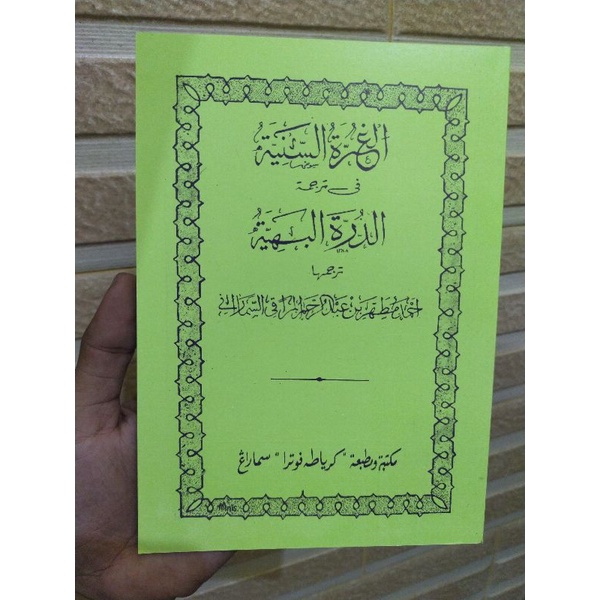 الغرة السنية
في ترجمة
الدرة البهية
ترجمها
احمد مطهر بن عبد الرحمن المراقي السماراني
مكتبة ومطبعة "كرياطه فوترا" سماراڠ